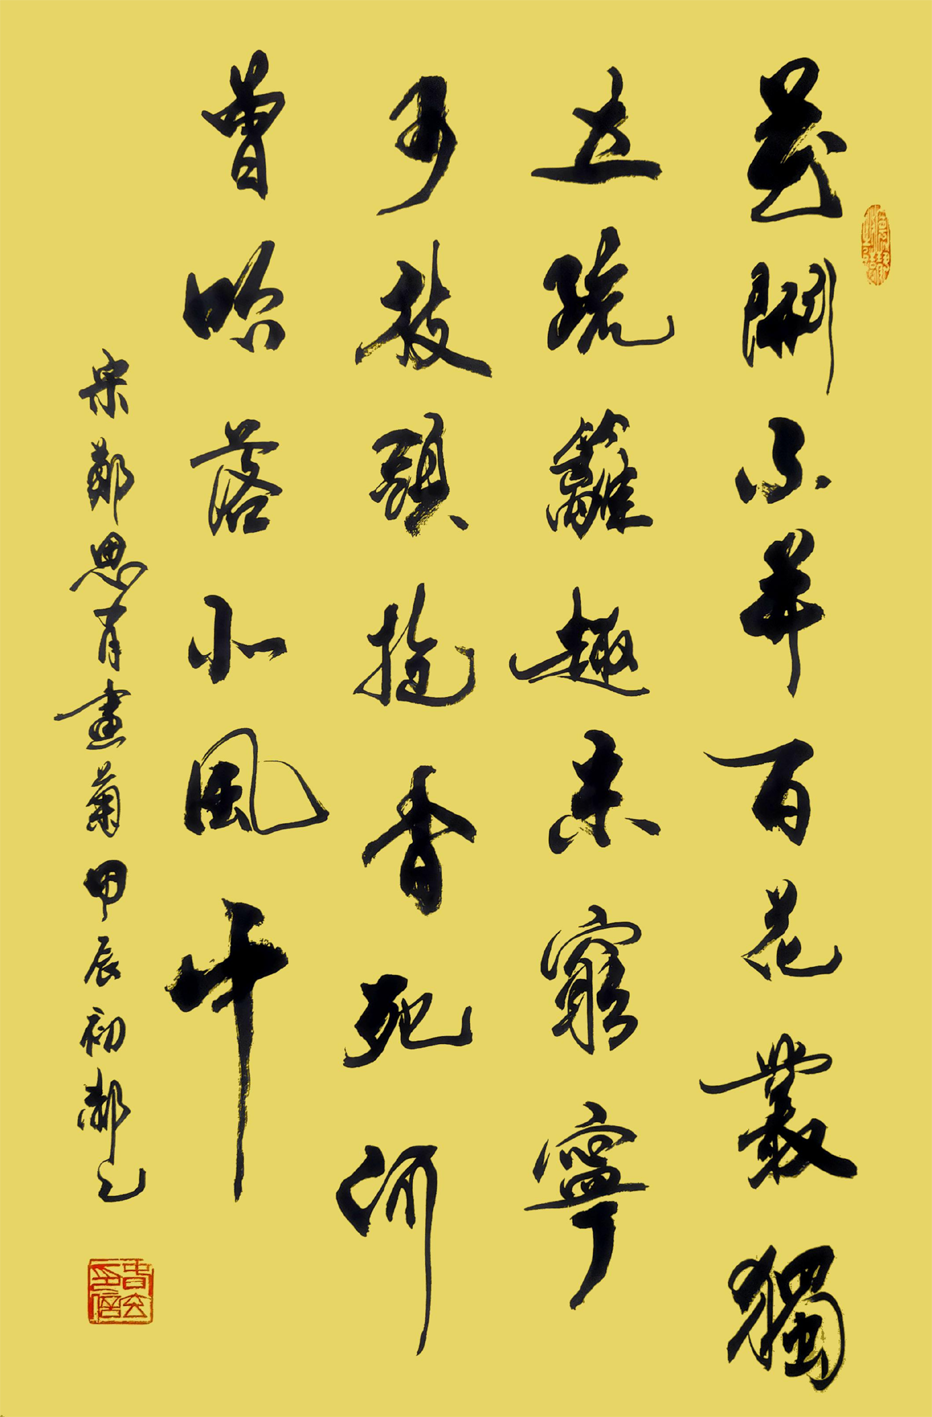 花開不並百花叢獨
立疏籬趣未窮寧
可枝頭抱香死何
曾吹落北風中
宋鄭思肖畫菊甲辰初